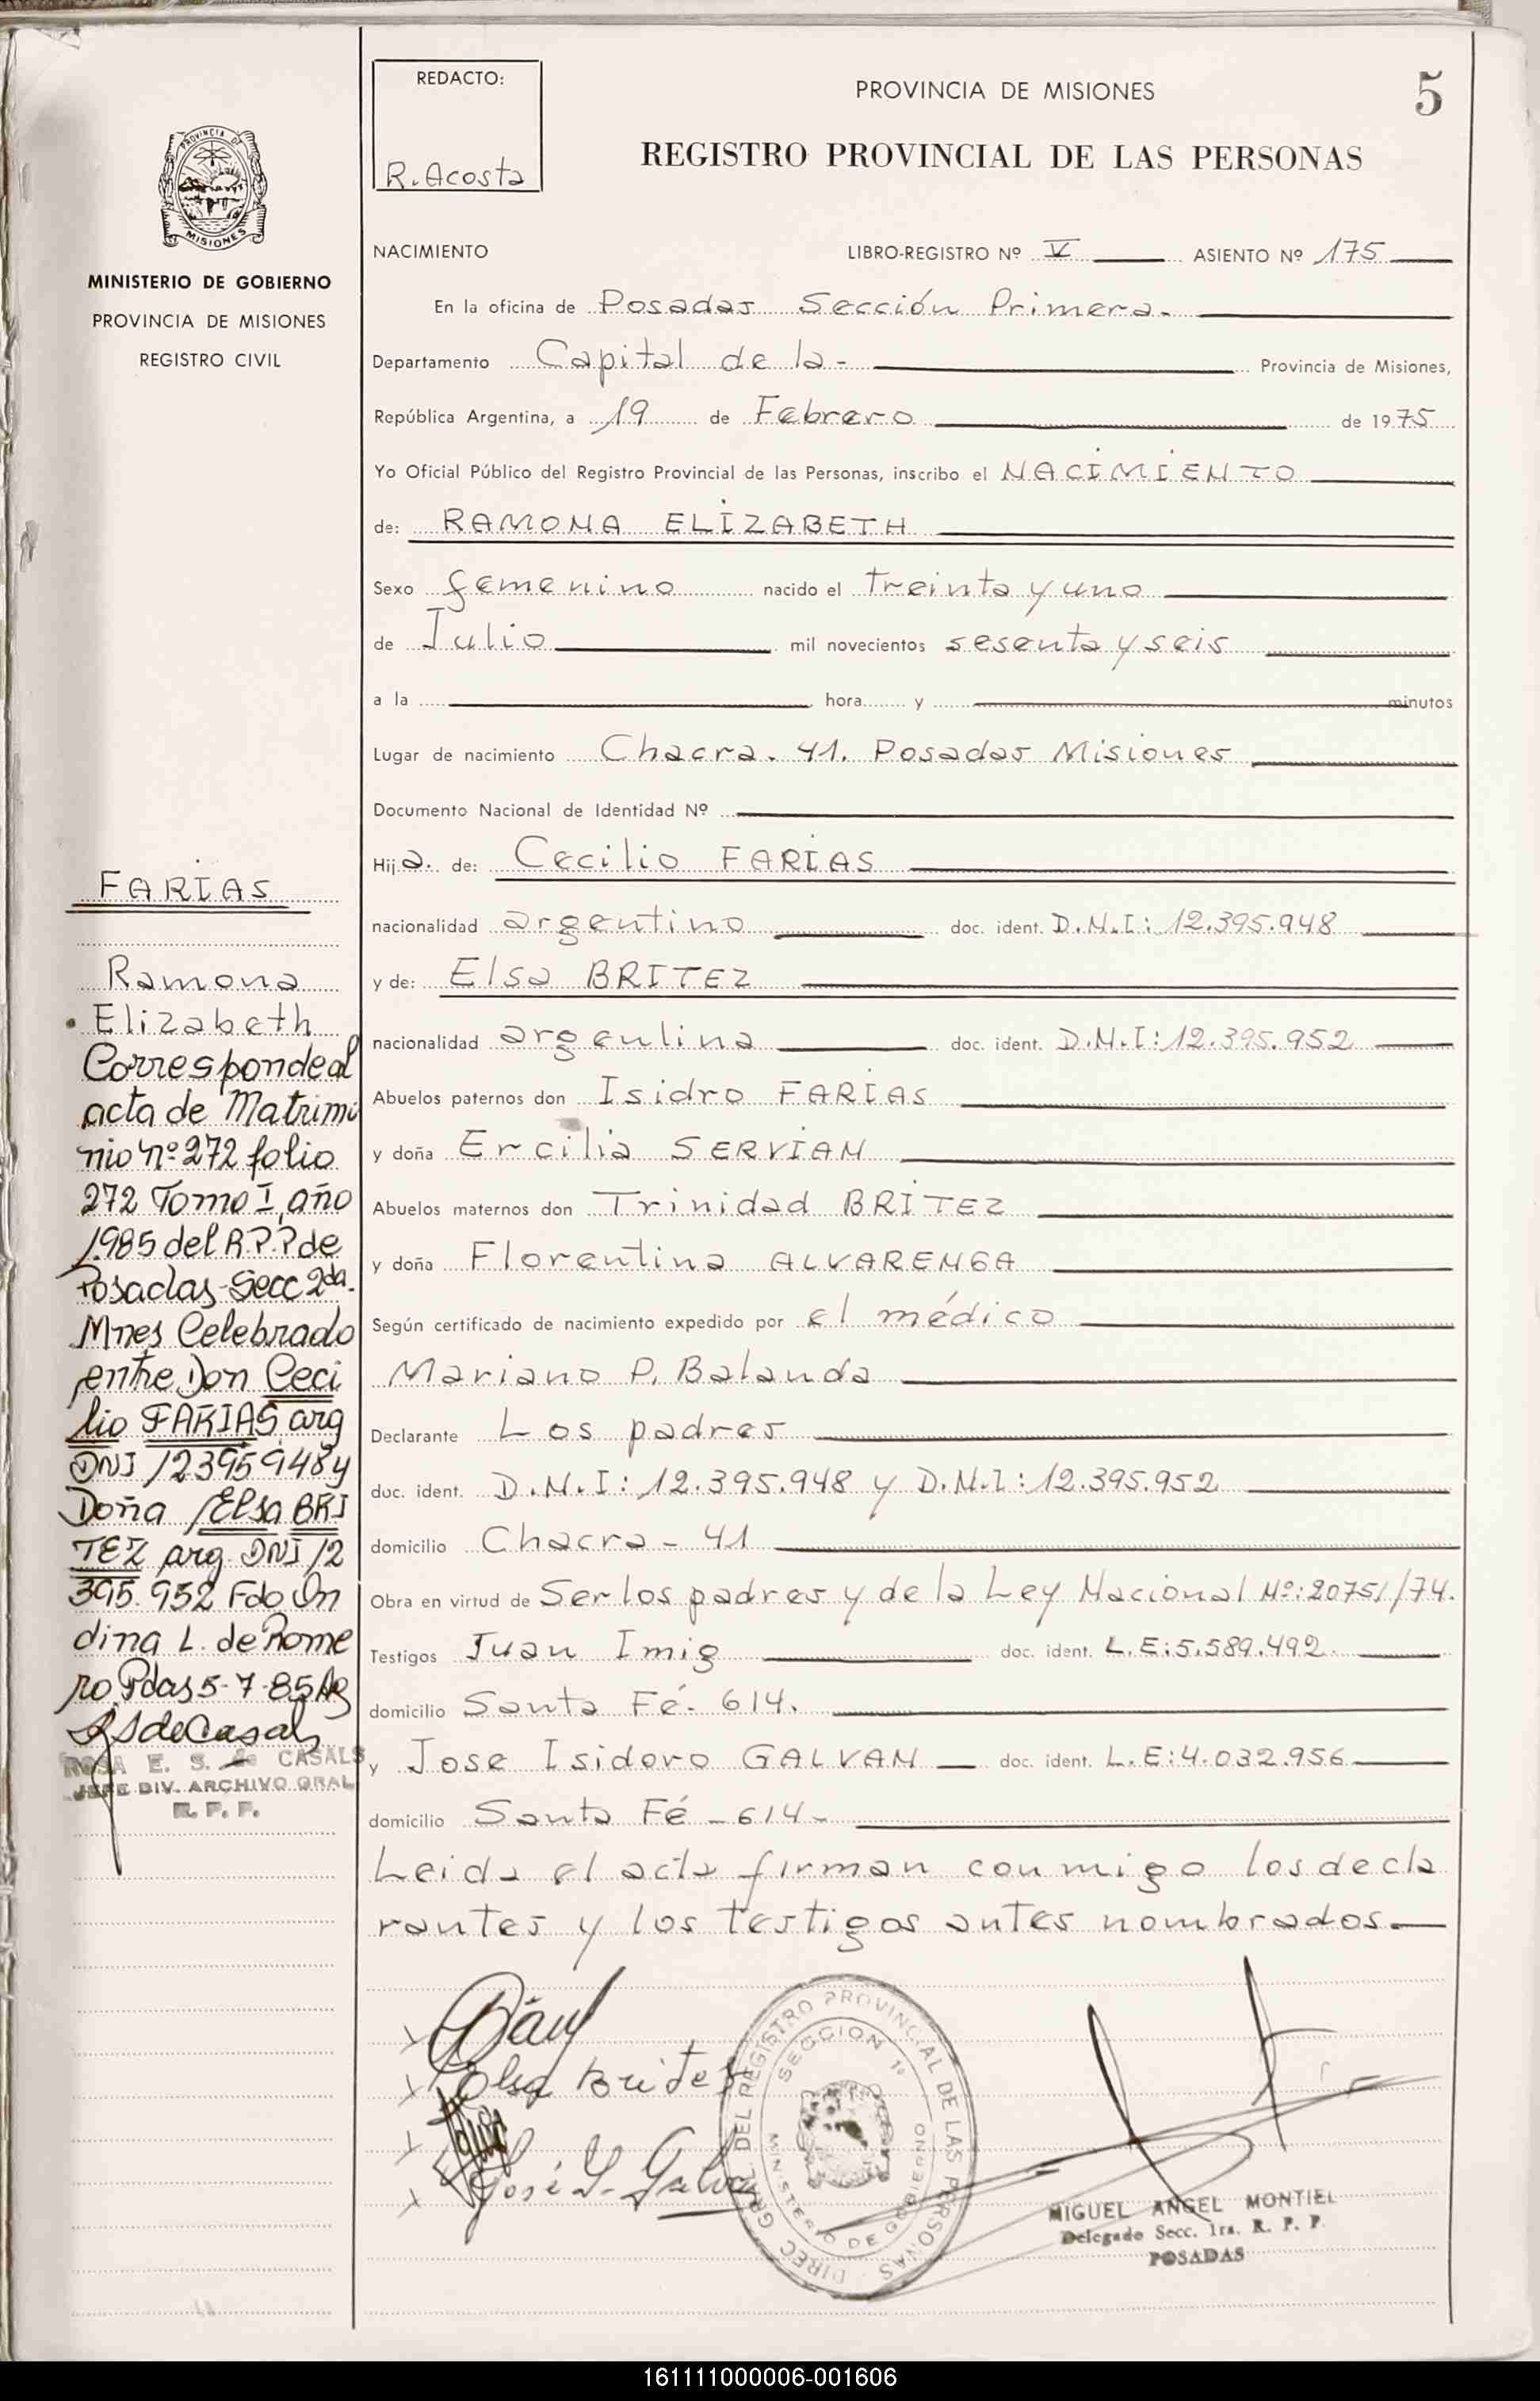 REDACTO:
R. Acosta
PROVINCIA DE MISIONES
5
REGISTRO PROVINCIAL DE LAS PERSONAS
PROVINCIA DE
MISIONES
MINISTERIO DE GOBIERNO
PROVINCIA DE MISIONES
REGISTRO CIVIL
NACIMIENTO LIBRO-REGISTRO Nº V ASIENTO Nº 175
En la oficina de Posadas Sección Primera.
Departamento Capital de la- Provincia de Misiones,
República Argentina, a 19 de Febrero de 1975
Yo Oficial Público del Registro Provincial de las Personas, inscribo el NACIMIENTO
de: RAMONA ELIZABETH
Sexo femenino nacido el treinta y uno
de Julio mil novecientos sesenta y seis
a la hora y minutos
Lugar de nacimiento Chacra. 41. Posadas Misiones
Documento Nacional de Identidad Nº
Hija. de: Cecilio FARIAS
nacionalidad argentino doc. ident. D.N.I: 12.395.948
y de: Elsa BRITEZ
nacionalidad argentina doc. ident. D.N.I: 12.395.952
Abuelos paternos don Isidro FARIAS
y doña Ercilia SERVIAN
Abuelos maternos don Trinidad BRITEZ
y doña Florentina ALVARENGA
Según certificado de nacimiento expedido por el médico
Mariano P. Balanda
Declarante Los padres
doc. ident. D.N.I: 12.395.948 y D.N.I: 12.395.952
domicilio Chacra - 41
Obra en virtud de Ser los padres y de la Ley Nacional Nº: 20751/74.
Testigos Juan Imig doc. ident. L.E: 5.589.492
domicilio Santa Fé- 614.
y Jose Isidoro GALVAN doc. ident. L.E: 4.032.956
domicilio Santa Fé - 614-
Leida el acta firman conmigo los decla
rantes y los testigos antes nombrados.
FARIAS
Ramona
Elizabeth
Corresponde al
acta de Matrimo
nio nº 272 folio
272 Tomo I, año
1985 del R.P.P de
Posadas-Secc 2da.
Mnes Celebrado
entre Don Ceci
lio FARIAS arg
DNI 12395948 y
Doña Elsa BRI
TEZ arg. DNI 12
395.952 Fdo On
dina L. de Rome
ro Pdas 5-7-85
RSdeCasals
ROSA E. S. de CASALS
JEFE DIV. ARCHIVO GRAL
R. P. P.
Elsa Britez
José I. Galvan
DIREC. GRAL. DEL REGISTRO PROVINCIAL DE LAS PERSONAS
SECCION 1º
MINISTERIO DE GOBIERNO
MIGUEL ANGEL MONTIEL
Delegado Secc. 1ra. R. P. P.
POSADAS
161111000006-001606